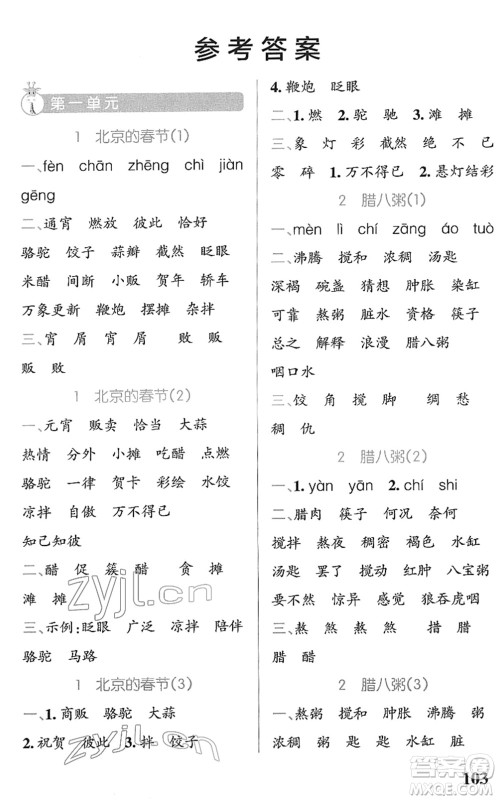 参考答案
第一单元
1 北京的春节(1)
一、fèn chān zhēng chì jiàn
gēng
二、通宵 燃放 彼此 恰好
骆驼 饺子 蒜瓣 截然 眨眼
米醋 间断 小贩 贺年 轿车
万象更新 鞭炮 摆摊 杂拌
三、宵 屑 屑 宵 败 贩
贩 败
1 北京的春节(2)
一、元宵 贩卖 恰当 大蒜
热情 分外 小摊 吃醋 点燃
骆驼 一律 贺卡 彩绘 水饺
凉拌 自傲 万不得已
知己知彼
二、醋 促 簇 醋 贪 摊
滩 摊
三、示例:眨眼 广泛 凉拌 陪伴
骆驼 马路
1 北京的春节(3)
一、1.商贩 骆驼 大蒜
2.祝贺 彼此 3.拌 饺子
4.鞭炮 眨眼
二、1.燃 2.驼 驰 3.滩 摊
三、象 灯 彩 截 然 已
零 碎 1.万不得已 2.悬灯结彩
2 腊八粥(1)
一、mèn lì chí zāng áo tuò
二、沸腾 搅和 浓稠 汤匙
深褐 碗盏 猜想 肿胀 染缸
可靠 熬粥 脏水 资格 筷子
总之 解释 浪漫 腊八粥
咽口水
三、饺 角 搅 脚 绸 愁
稠 仇
2 腊八粥(2)
一、1.yàn yān 2.chí shi
二、腊肉 筷子 何况 奈何
搅拌 熬夜 稠密 褐色 水缸
汤匙 罢了 红肿 八宝粥
要不然 惊异 感觉 狼吞虎咽
三、熬 煞 熬 煞 煎
煎 腊 腊 醋
2 腊八粥(3)
一、熬粥 搅和 肿胀 沸腾 粥
浓稠 粥 匙 匙 水缸 脏
103
zyjl.cn
答案圈